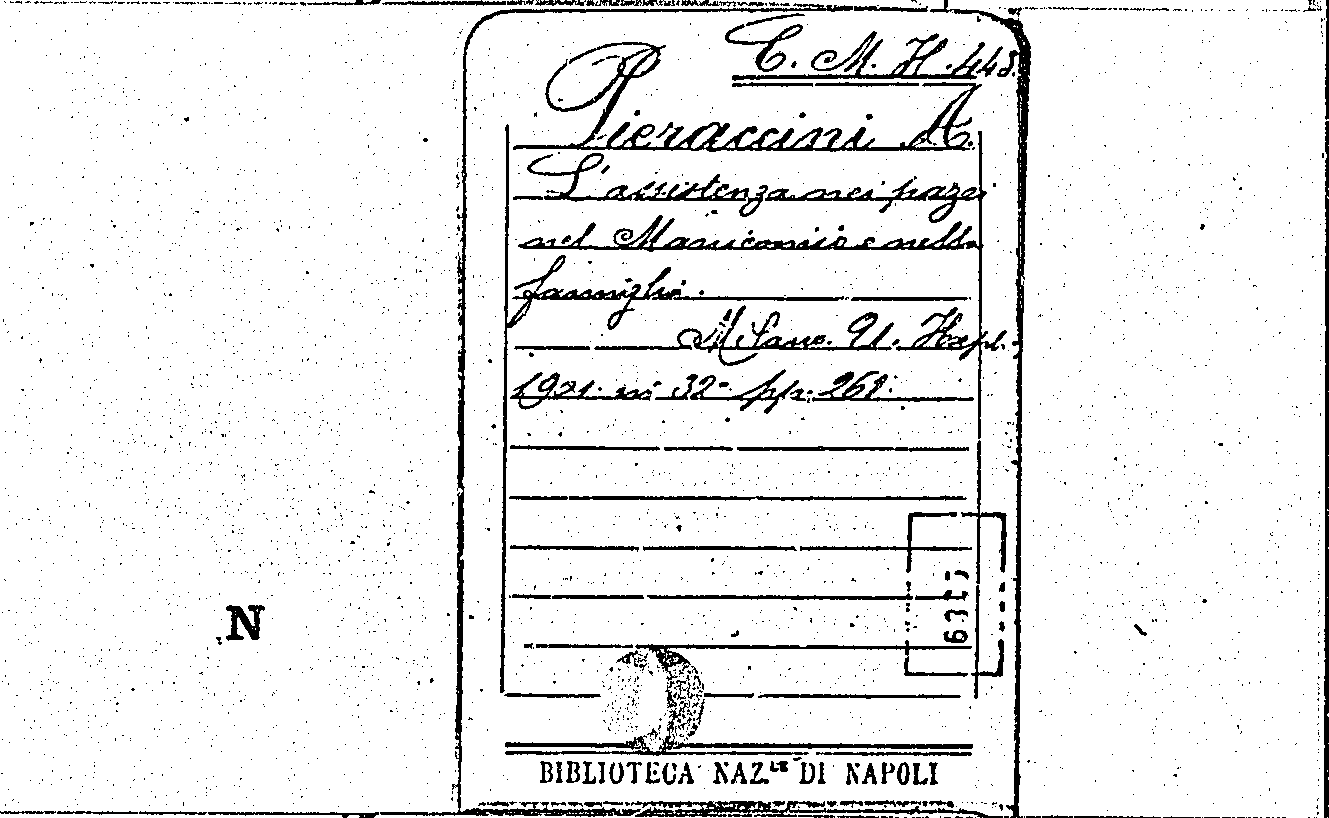 C. M. H. 448.
Pieraccini A.
L'assistenza nei pazzi
nel Manicomio e nella
famiglia.
Milano. U. Hoepl.
1901. in 32° pp. 261.
N
BIBLIOTECA NAZ.LE DI NAPOLI